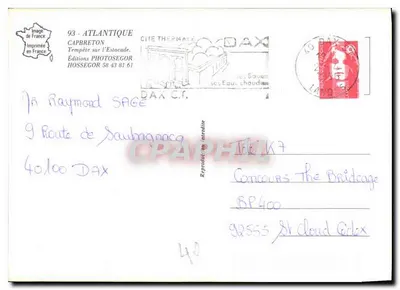 Image
de France
Imprimée
en France
93 - ATLANTIQUE
CAPBRETON
Tempête sur l'Estacade.
Editions PHOTOSEGOR
HOSSEGOR 58 43 81 61
CITE THERMALE
DAX
ses Eaux chaudes
DAX C.T.
Mr Raymond SAGE
9 Route de Saubagnacq
40100 DAX
Reproduction interdite
CPAPHIL
K7
Concours The Birdcage
BP400
92555 St Cloud Cédex
48